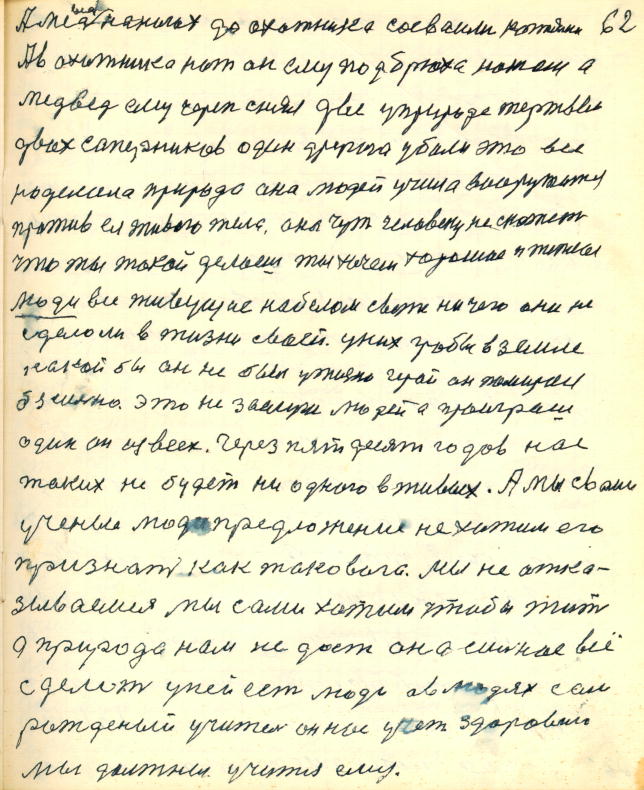 62
А медвед на ногах до охотника
А в охотника нот он ему под брюха ногош а
медвед ему череп снял две у природе жертвы
двох саперников один другога убили это все
поделала природа она людей учила вооружатся
против ея живога тела, она чут человеку не скажет
что ты такой делаеш ты хочеш хорошое и теплое
люди все живущие на белом свети ничего они не
сделоли в жизни своей. у них гробы в земле
какой бы он не был у жизни герой он помирает
это не заслуги людей а проиграш
один он из всех. Через пятдесят годов нас
таких не будет ни одного в живых. А мы свами
ученые люди предложение не хотим его
признат как таковога. Мы не отка-
зываемся мы сами хотим чтобы жит
а природа нам не даст она силное всё
сделает у ней ест люди а в людях сам
рожденый учител он нас учет здоровию
мы должны учится ему.